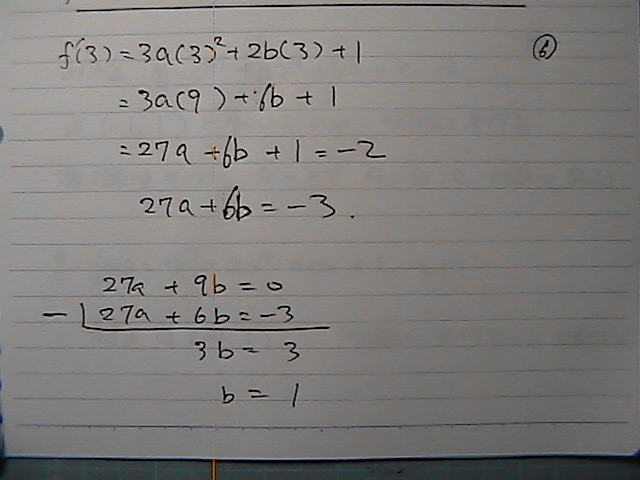 f'(3) = 3a(3)² + 2b(3) + 1
⑥
= 3a(9) + 6b + 1
= 27a + 6b + 1 = -2
27a + 6b = -3.
27a + 9b = 0
- 27a + 6b = -3
3b = 3
b = 1